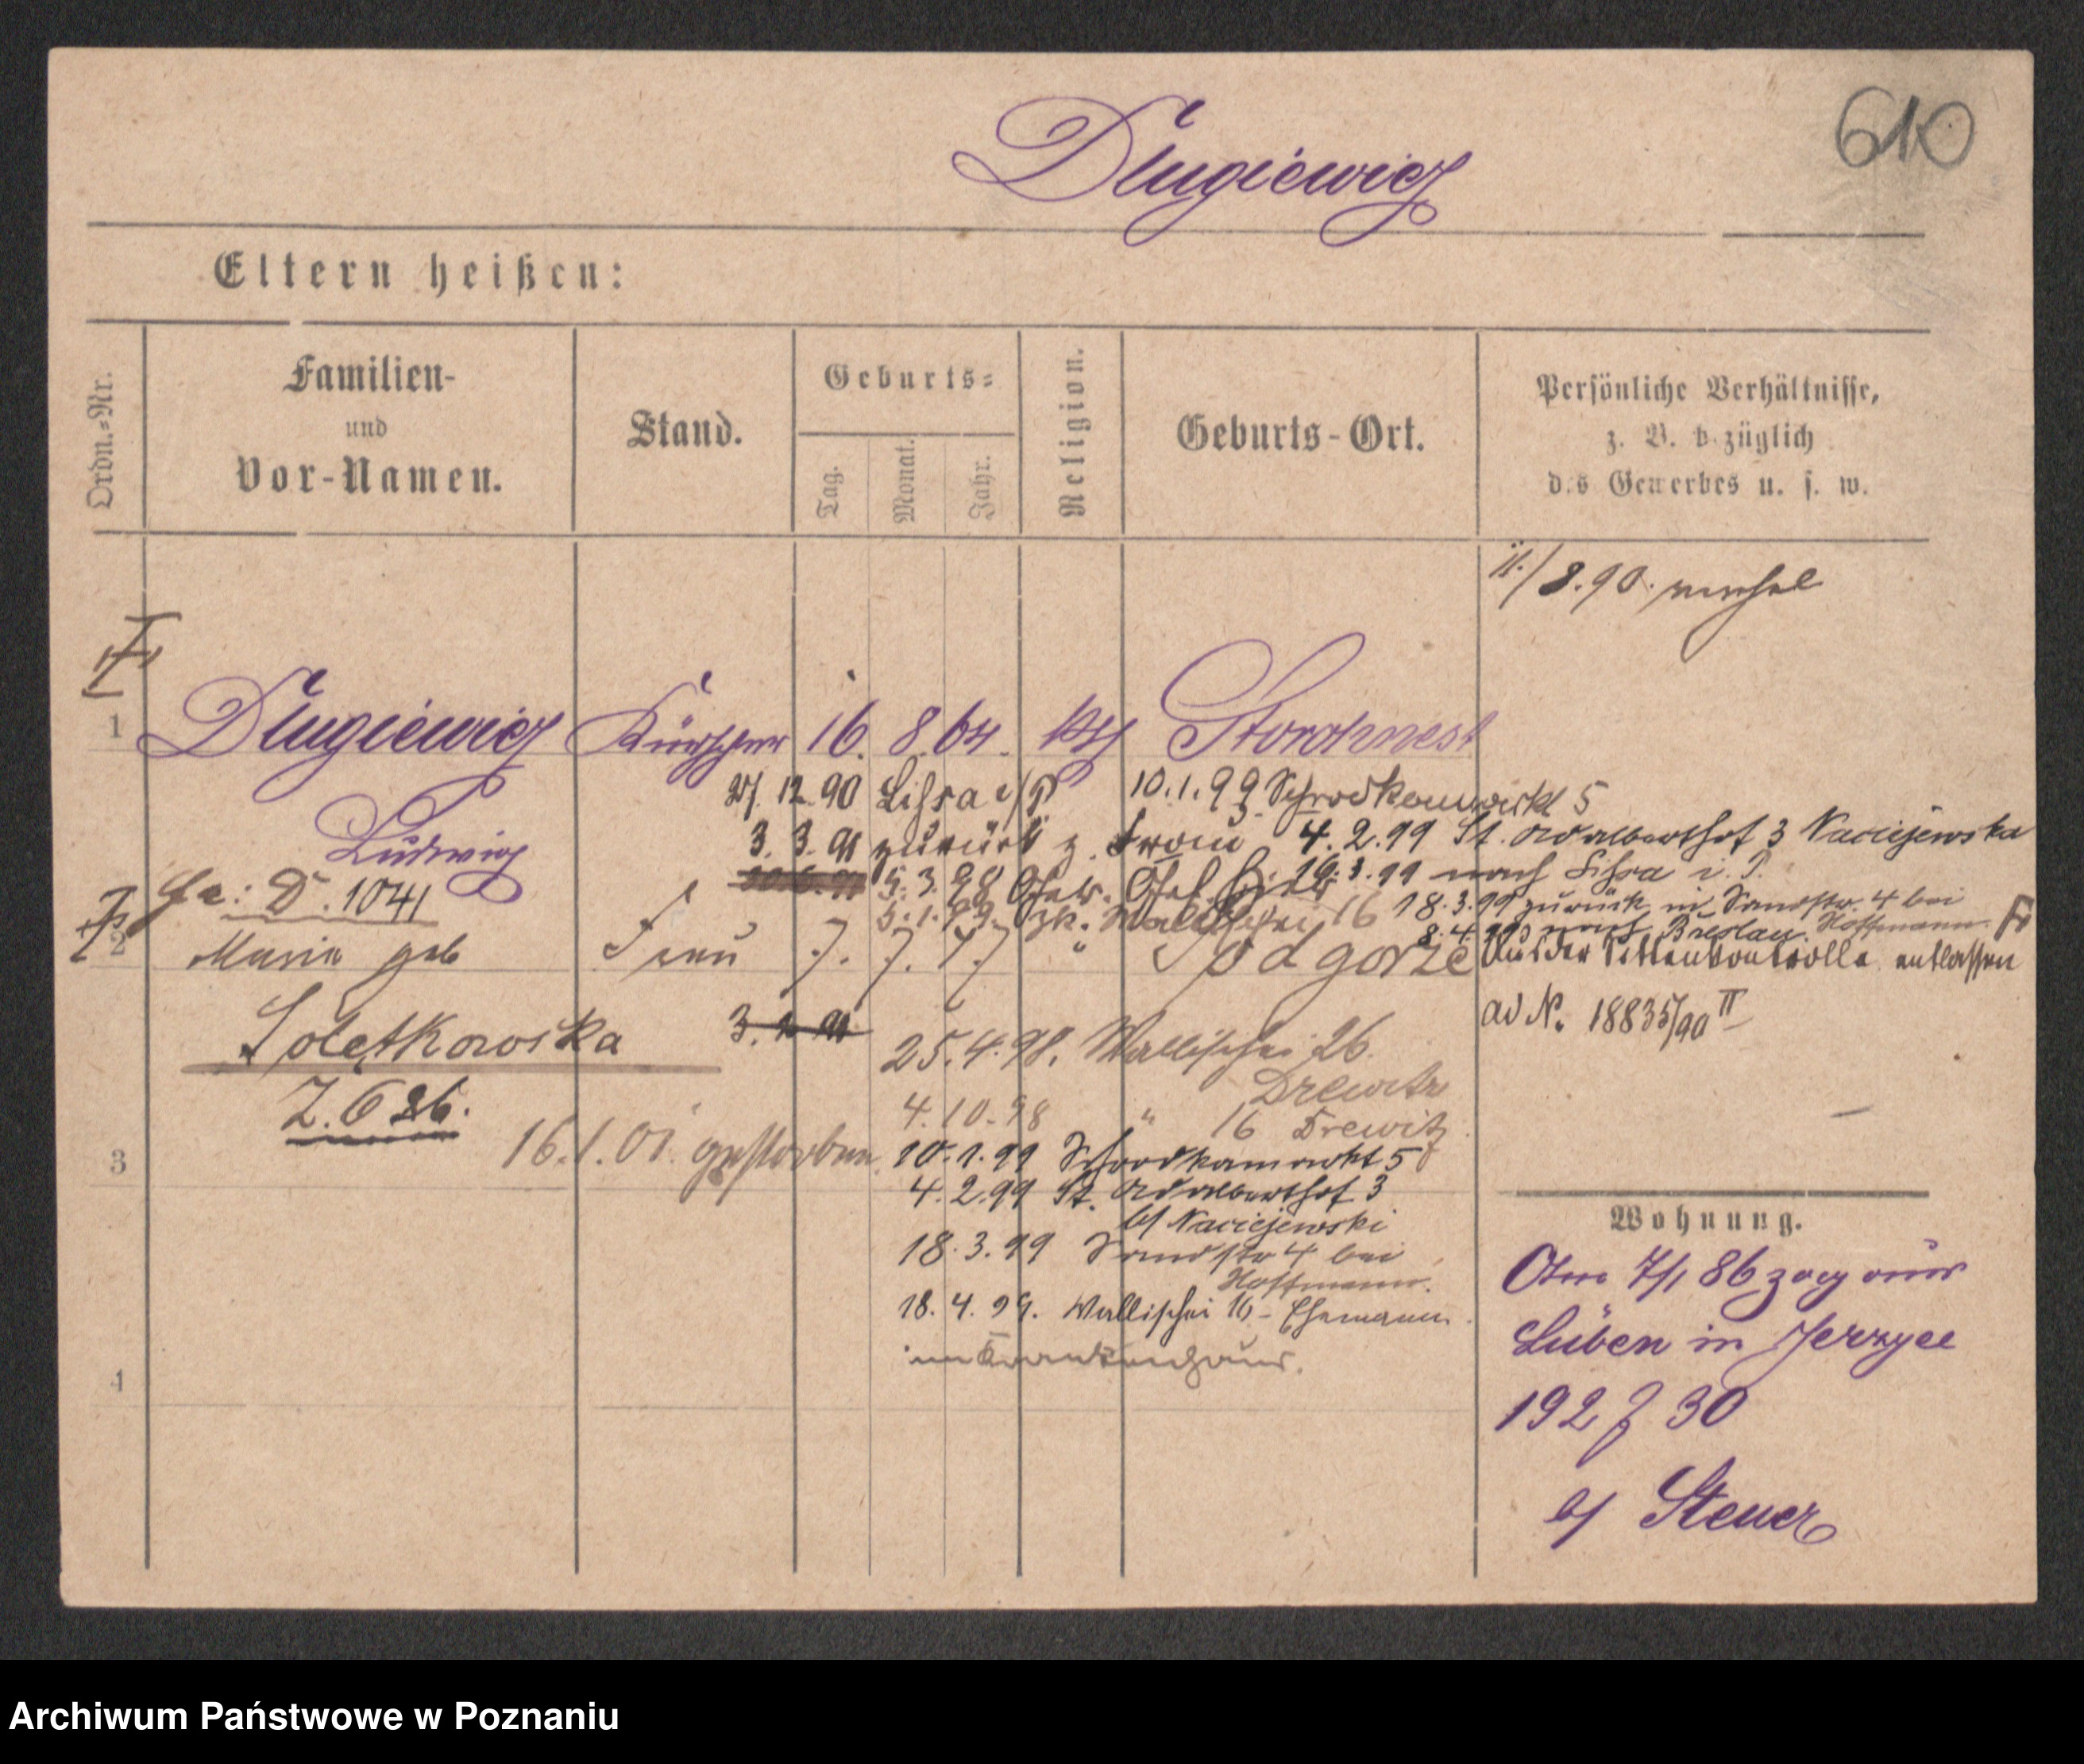 610
Dlugiewicz
Eltern heißen:
Ordn.-Nr.
Familien-
und
Vor-Namen.
Stand.
Geburts-
Tag.
Monat.
Jahr.
Religion.
Geburts-Ort.
Persönliche Verhältnisse,
z. B. bezüglich
des Gewerbes u. s. w.
/8.90.
1 Dlugiewicz Kürschner 16. 8. 64. kth Storchnest
Ludwig
27. 12. 90 Lissa i/P
10.1.99 Schrodkamarkt 5
3. 3. 91 zurück z. Frau
4.2.99 St. Adalberthof 3 Maciejewska
5.3.98 Ger. Gef.
16.3.99 nach Lissa i. P.
D. 1041
5.1.99. zk. Wallischei 16
18.3.99 zurück in Sandstr. 4 bei
Hoffmann
8.4.99 nach Breslau
2 Maria geb Frau 7. 7. 77 " Podgorze
Aus der Sittenkontrolle entlassen
ad N. 18835/90 II
Soletkowska
3. 91
Z. 626.
25.4.98. Wallischei 26.
Drewitz
4.10.98 " 16 Drewitz
16.1.01. gestorben
3
10.1.99 Schrodkamarkt 5
4.2.99 St. Adalberthof 3
b/ Maciejewski
18.3.99 Sandstr 4 bei
Hoffmann.
18.4.99. Wallischei 16 - Ehemann
im Krankenhaus.
4
Wohnung.
Am 7/1 86 zog aus
Lüben in Jerzyce
192 J 30
b/ Steuer
Archiwum Państwowe w Poznaniu